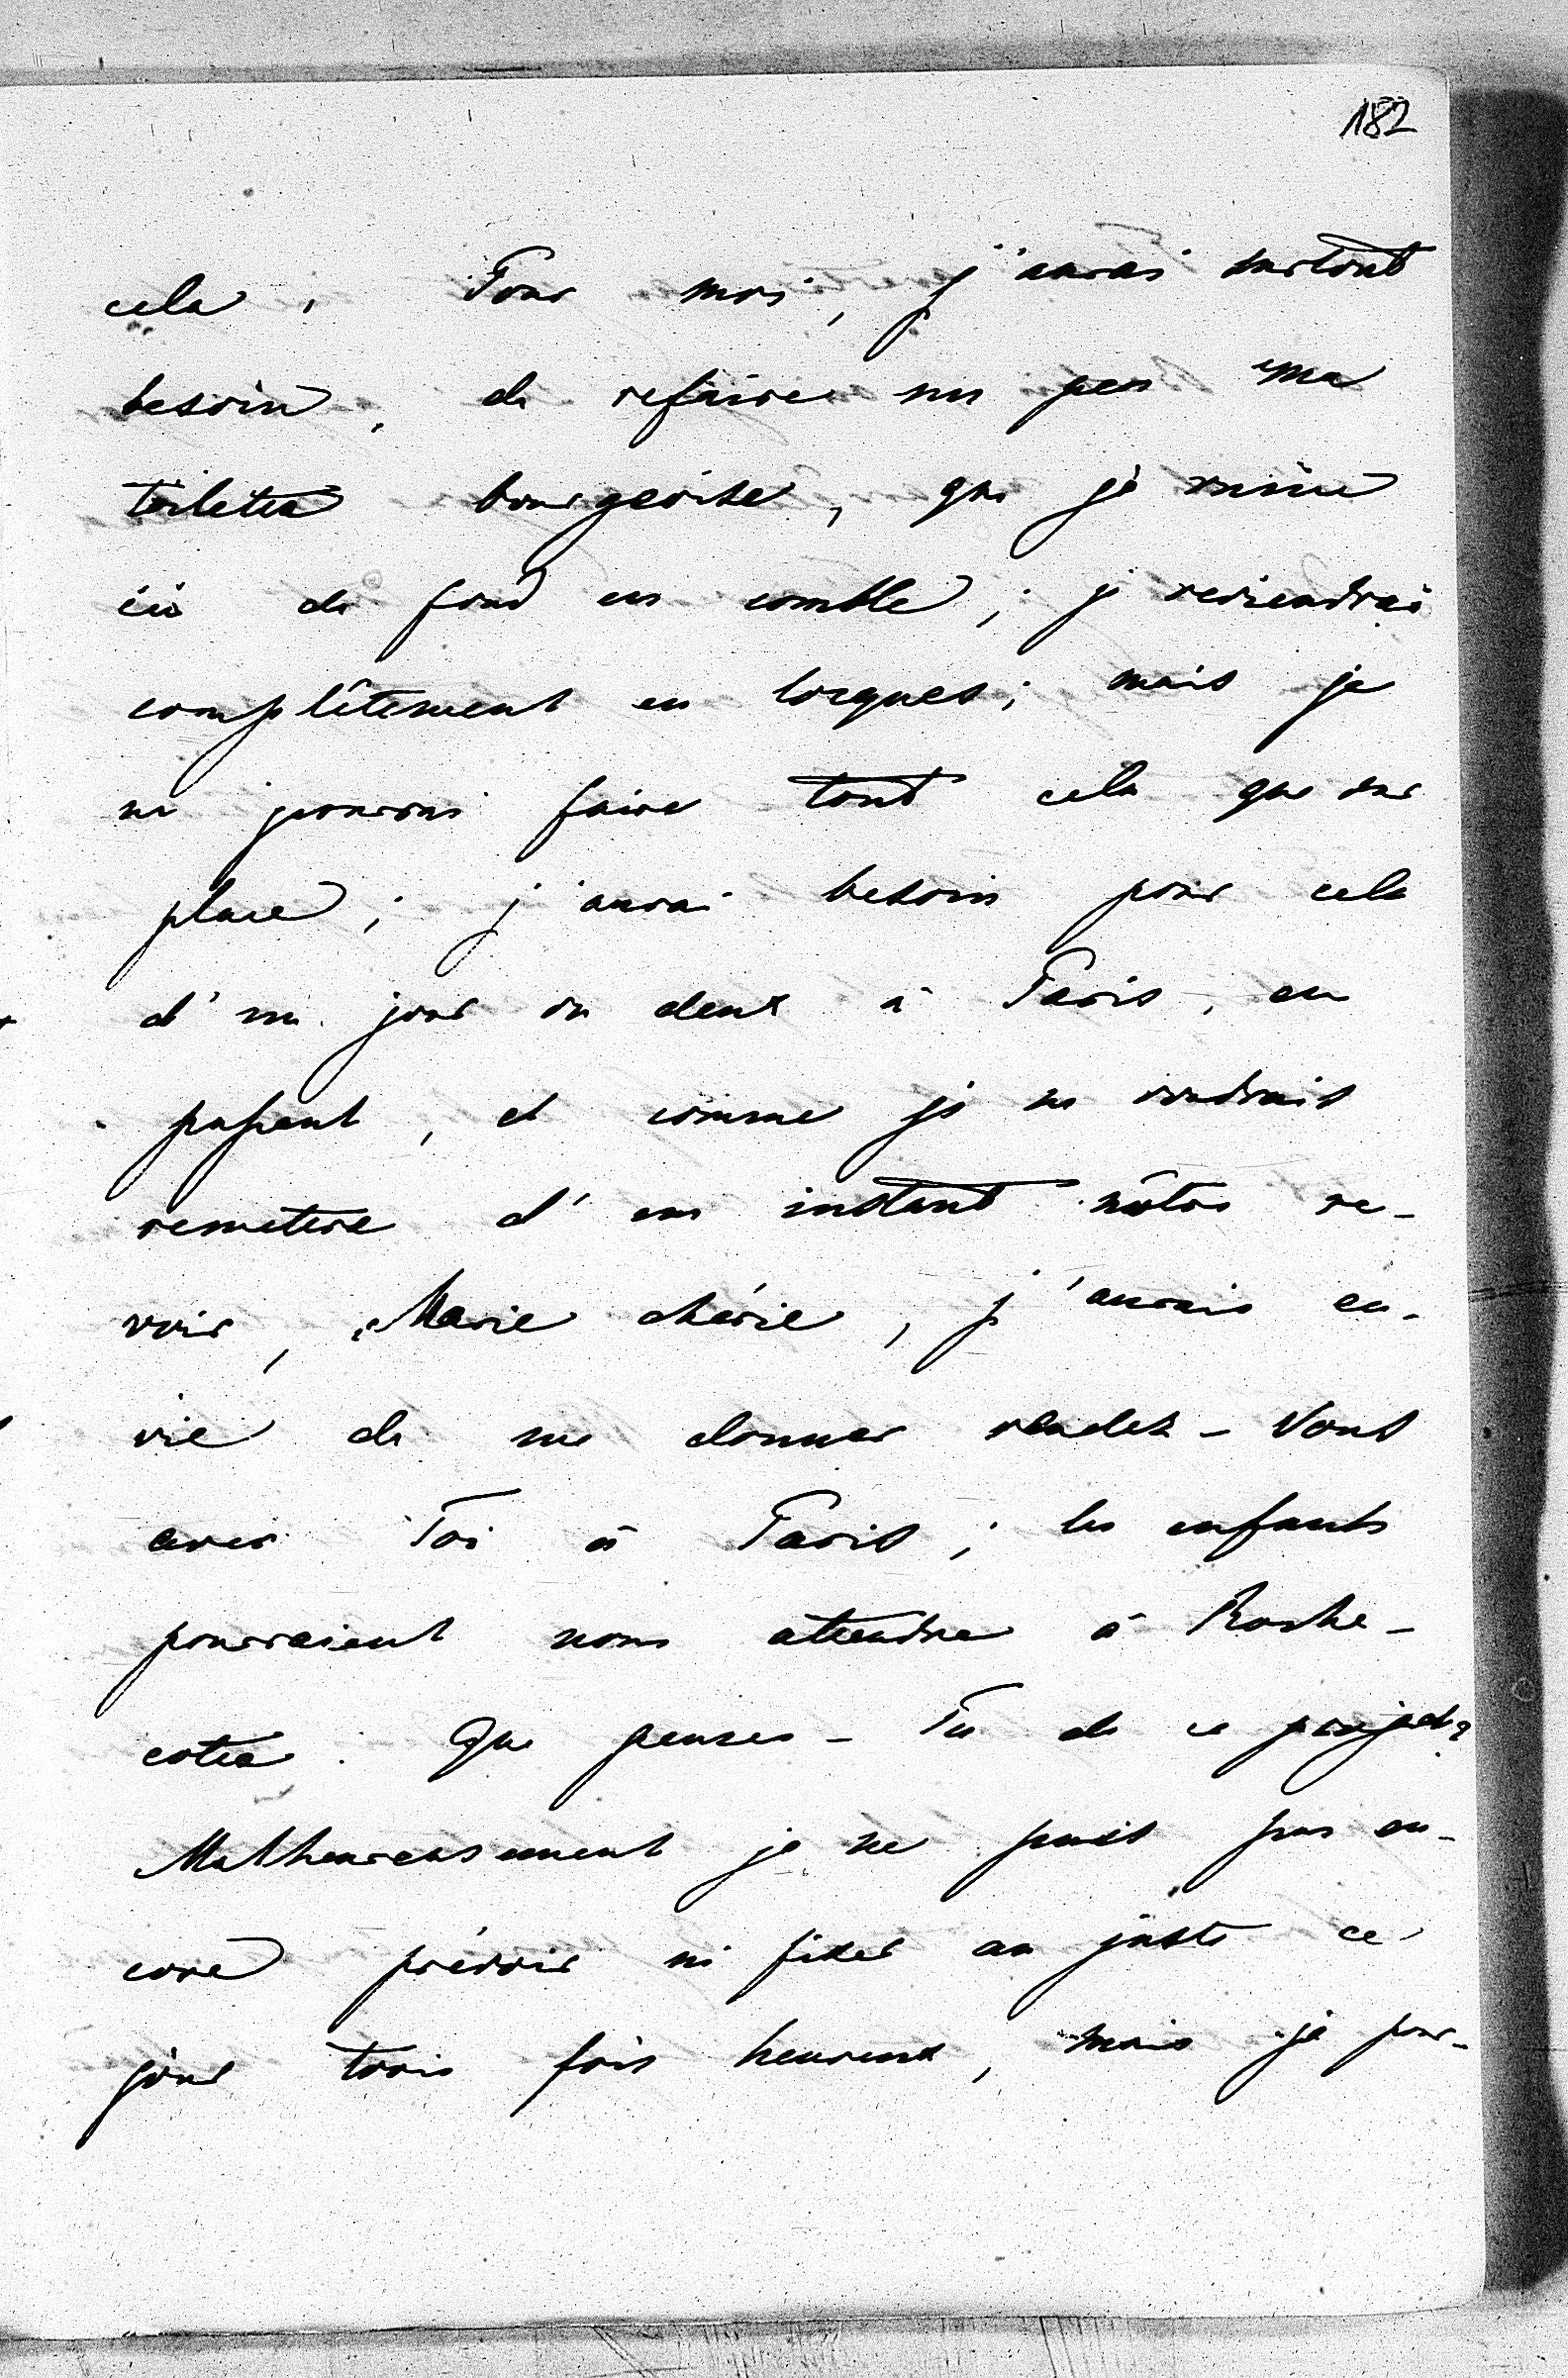 182
cela. Pour moi, j'aurai surtout
besoin, de refaire un peu ma
toilette bourgeoise, que je ruine
ici de fond en comble; je reviendrai
complêtement en loques; mais je
ne pourrai faire tout cela que sur
place; j'aurai besoin pour cela
d'un jour ou deux à Paris, en
passant, et comme je ne voudrais
remettre d'un instant nôtre re-
voir, Marie chérie, j'aurais en-
vie de me donner rendez-vous
avec Toi à Paris; les enfants
pourraient nous attendre à Roche-
cotte. Que penses-Tu de ce projet?
Malheureusement je ne puis pas en-
core prévoir ni fixer au juste ce
jour trois fois heureux, mais je pour-